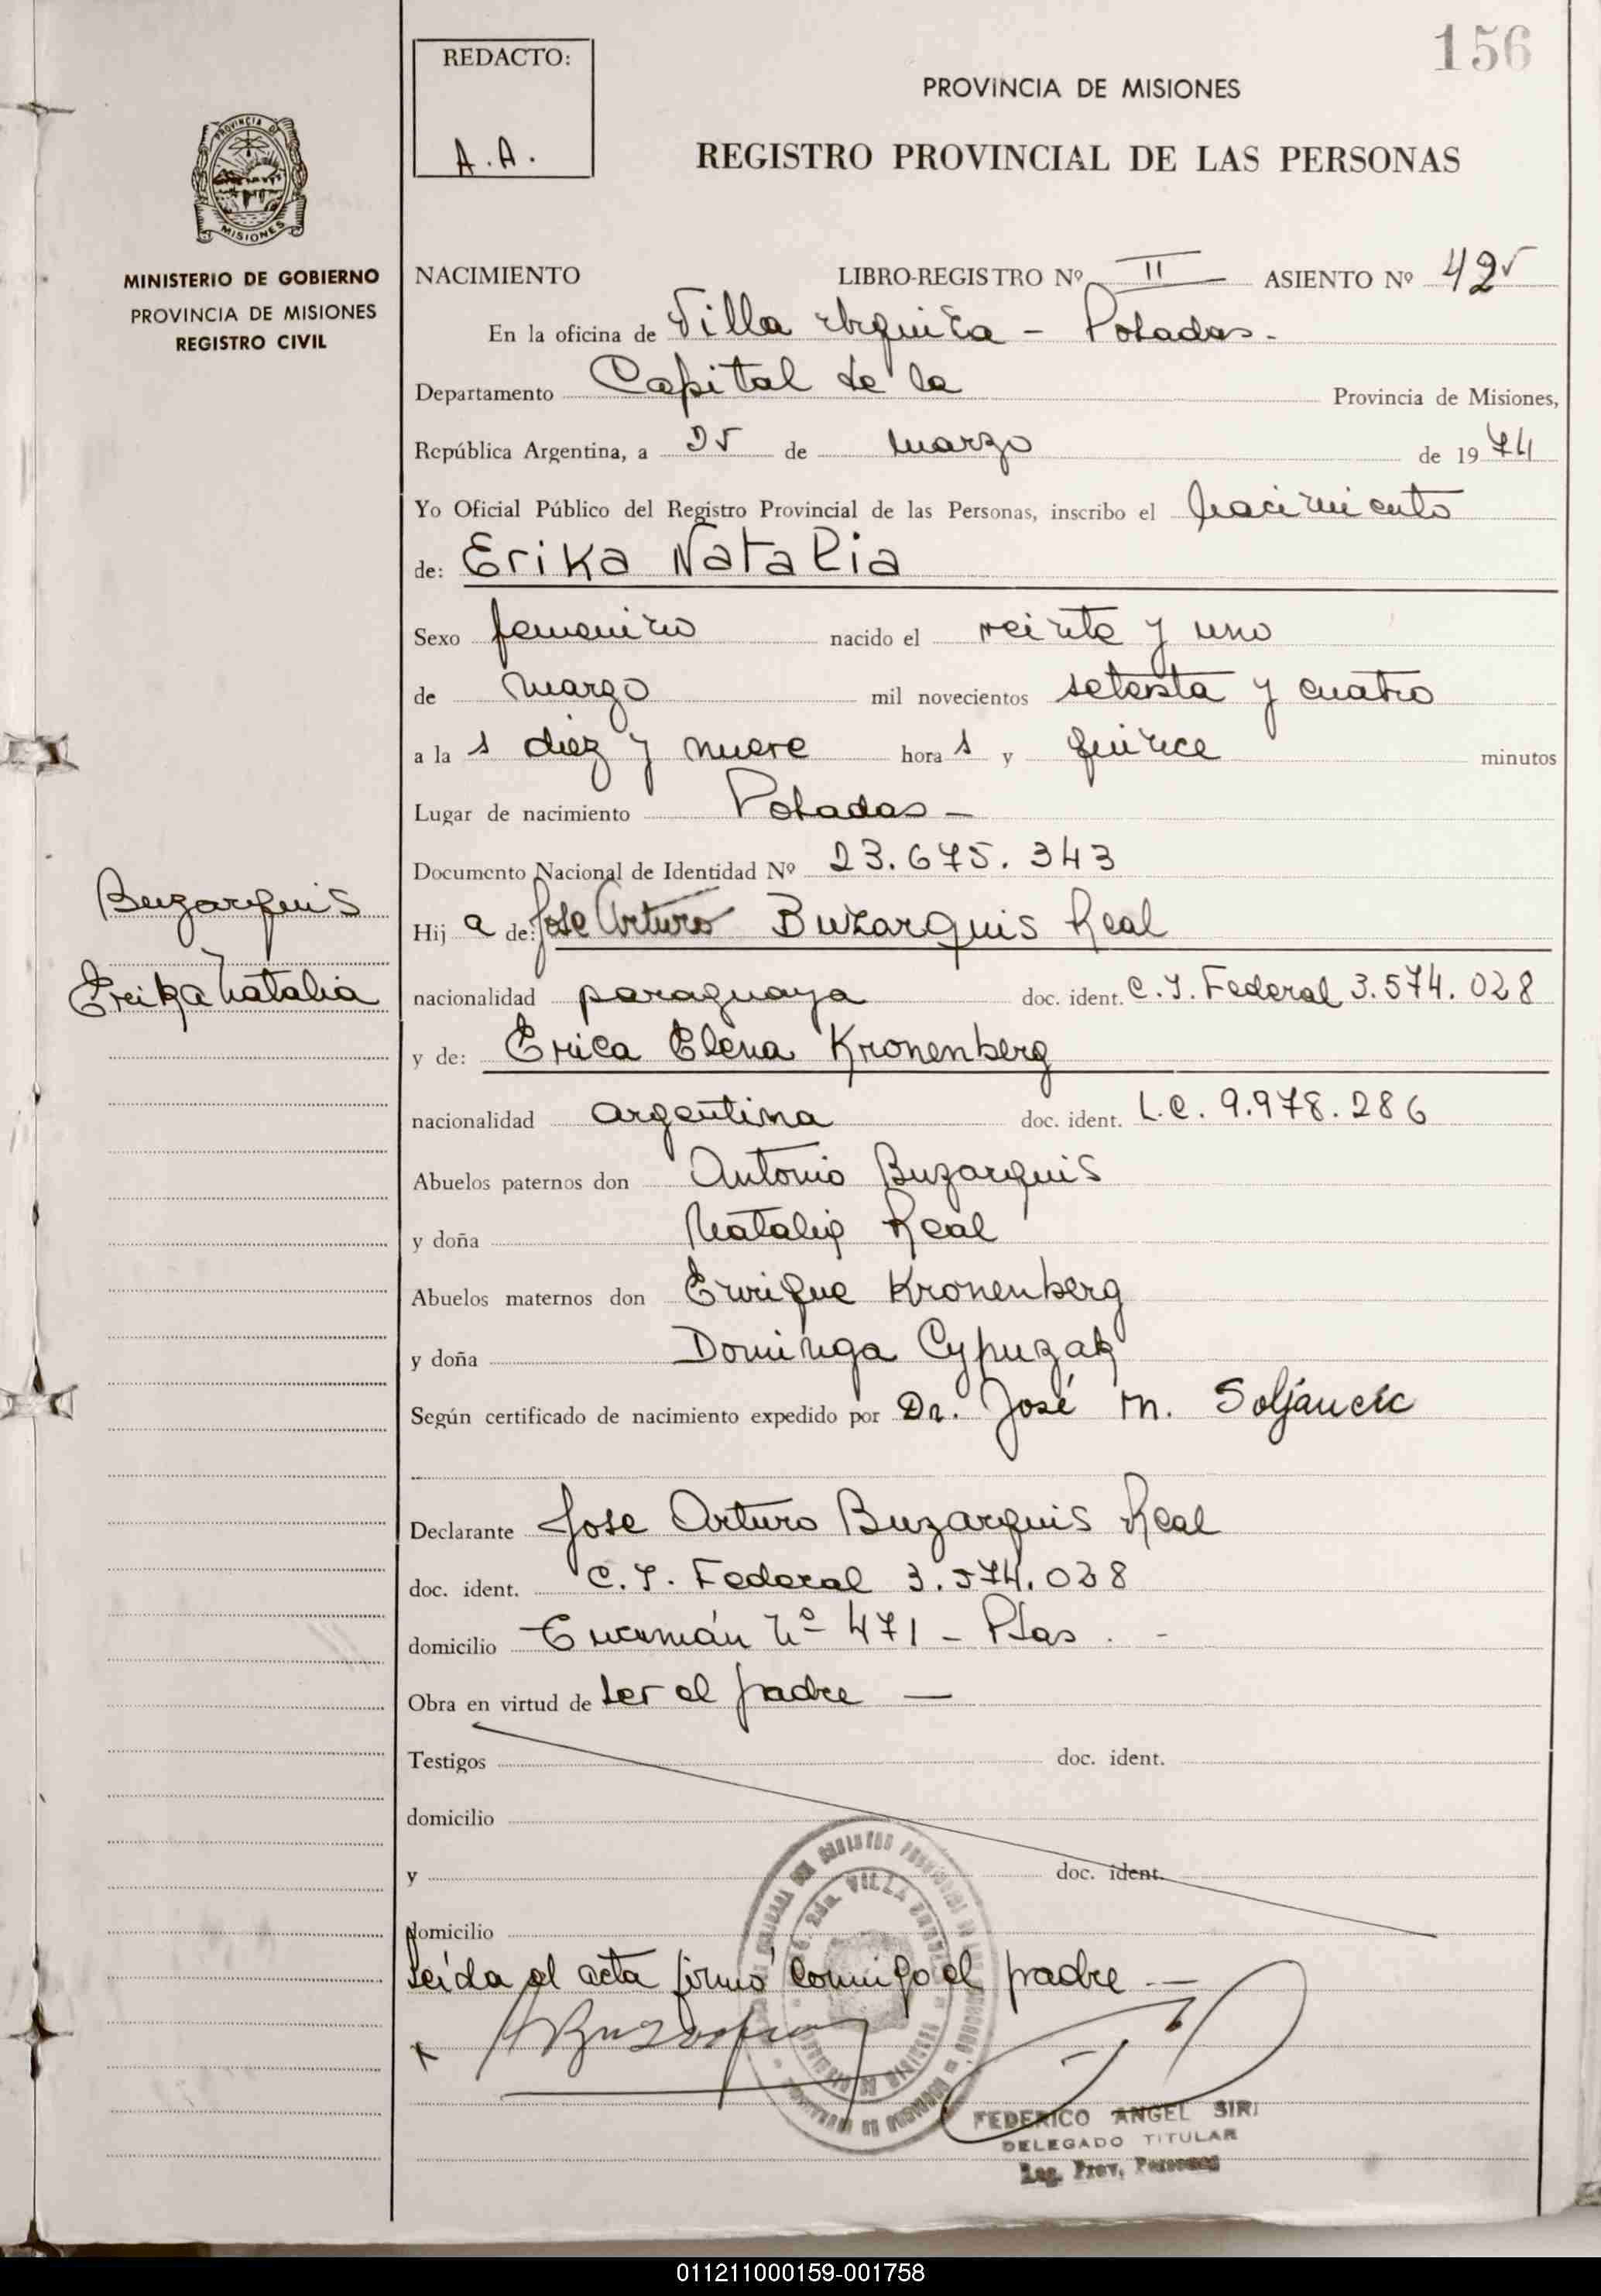 156
REDACTO:
A.A.
PROVINCIA DE MISIONES
REGISTRO PROVINCIAL DE LAS PERSONAS
PROVINCIA DE
MISIONES
MINISTERIO DE GOBIERNO
PROVINCIA DE MISIONES
REGISTRO CIVIL
NACIMIENTO LIBRO-REGISTRO Nº II ASIENTO Nº 425
En la oficina de Villa Urquiza - Posadas -
Departamento Capital de la Provincia de Misiones,
República Argentina, a 25 de marzo de 1974
Yo Oficial Público del Registro Provincial de las Personas, inscribo el nacimiento
de: Erika Natalia
Sexo femenino nacido el veinte y uno
de marzo mil novecientos setenta y cuatro
a la s diez y nueve hora s y quince minutos
Lugar de nacimiento Posadas -
Documento Nacional de Identidad Nº 23.675.343
Buzarquis
Erika Natalia
Hij a de: Jose Arturo Buzarquis Real
nacionalidad paraguaya doc. ident. C.I. Federal 3.574.028
y de: Erica Elena Kronenberg
nacionalidad argentina doc. ident. L.C. 9.978.286
Abuelos paternos don Antonio Buzarquis
y doña Natalia Real
Abuelos maternos don Enrique Kronenberg
y doña Dominga Cypuzak
Según certificado de nacimiento expedido por Dr. José M. Soljancic
Declarante Jose Arturo Buzarquis Real
doc. ident. C.I. Federal 3.574.028
domicilio Tucumán Nº 471 - Pdas. -
Obra en virtud de ser el padre —
Testigos doc. ident.
domicilio
y doc. ident.
domicilio
Leída el acta firmó conmigo el padre . —
FEDERICO ANGEL SIRI
DELEGADO TITULAR
Reg. Prov. Personas
011211000159-001758